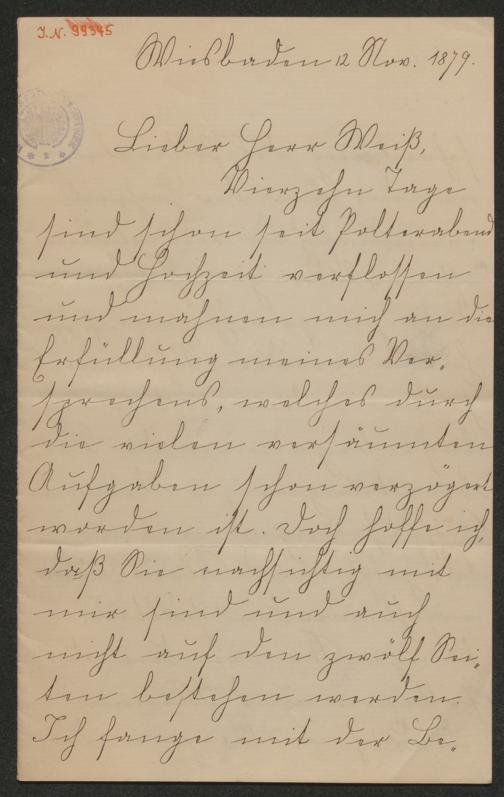 J.N. 99345
Wiesbaden 12 Nov. 1879.
Lieber Herr Weiß,
Vierzehn Tage
sind schon seit Polterabend
und Hochzeit verflossen
und mahnen mich an die
Erfüllung meines Ver-
sprechens, welches durch
die vielen versäumten
Aufgaben schon verzögert
worden ist. Doch hoffe ich,
daß Sie nachsichtig mit
mir sind und auch
nicht auf den zwölf Sei-
ten bestehen werden.
Ich fange mit der Be-